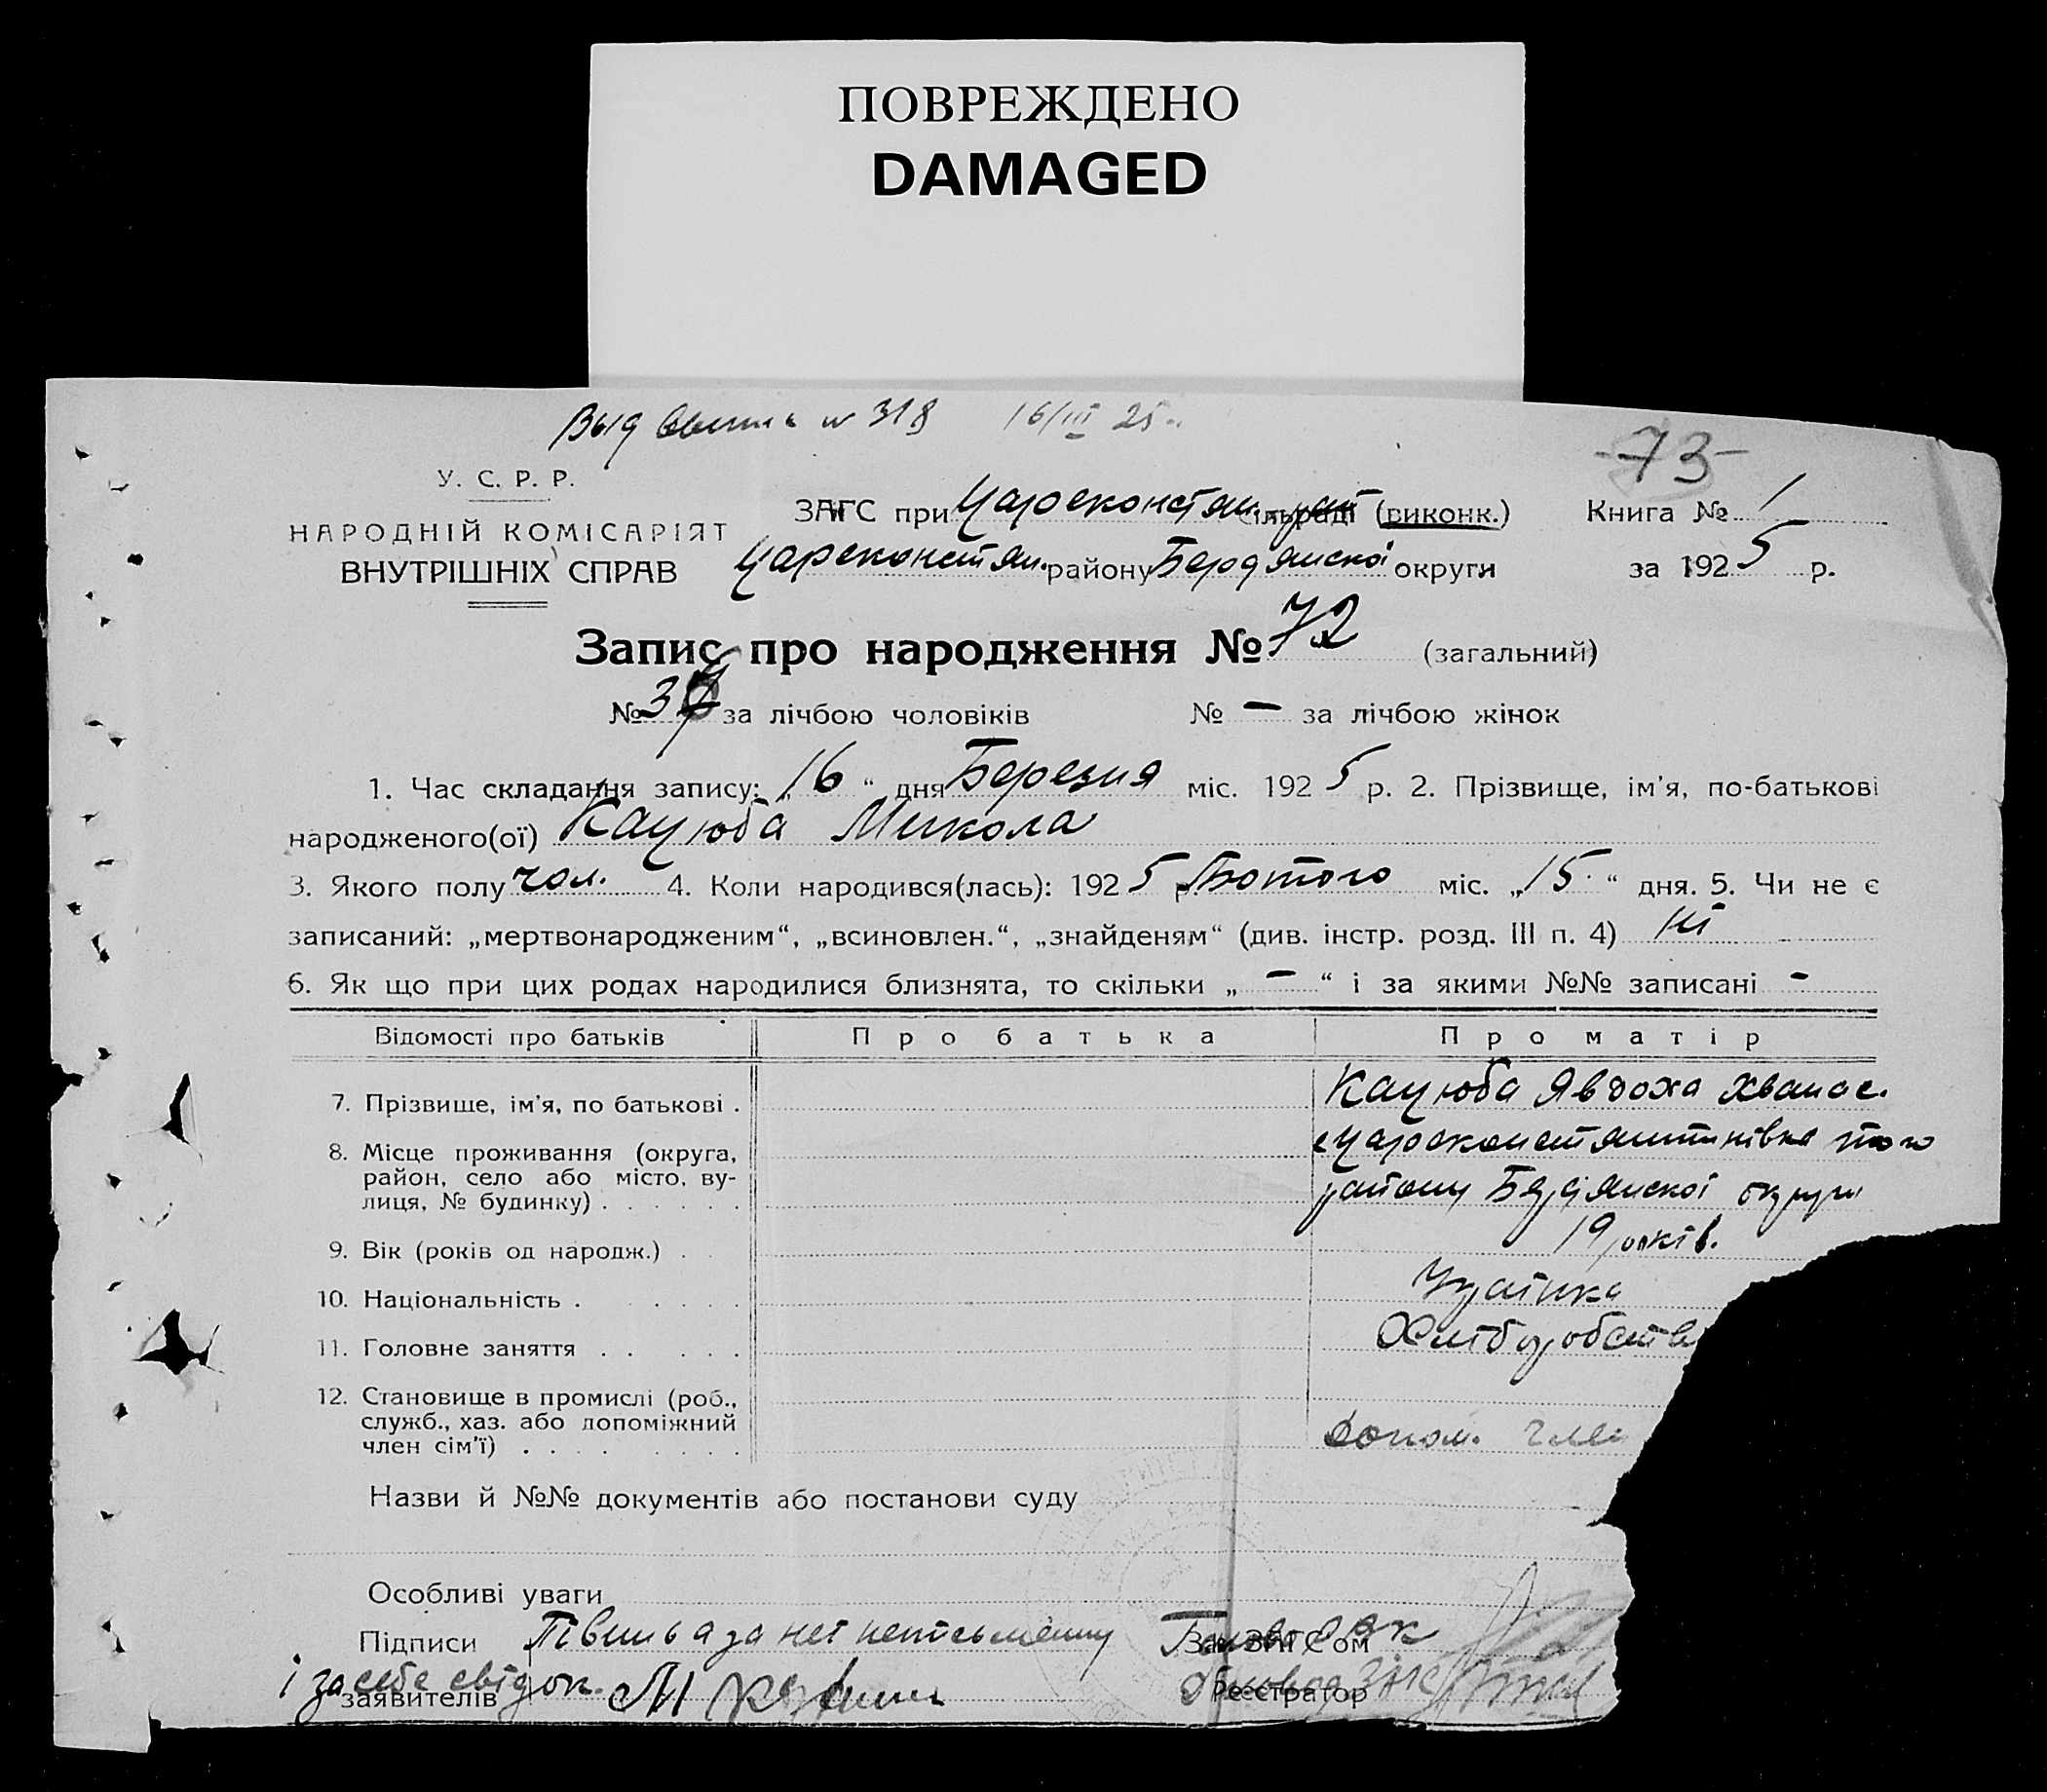 ПОВРЕЖДЕНО
DAMAGED
Выд № 318 16/III 25
-73-
У. С. Р. Р.
НАРОДНІЙ КОМІСАРІЯТ
ВНУТРІШНІХ СПРАВ
ЗАГС при Цареконстан. сільраді (виконк.) Книга № 1
Цареконстан. району Бердянскоі округи за 1925 р.
Запис про народження № 72 (загальний)
№ 37 за лічбою чоловіків № — за лічбою жінок
1. Час складання запису: „16“ дня Березня міс. 1925 р. 2. Прізвище, ім'я, по-батькові
народженого(ої) Кацюба Микола
3. Якого полу чол. 4. Коли народився(лась): 1925 р. Лютого міс. „15“ дня. 5. Чи не є
записаний: „мертвонародженим“, „всиновлен.“, „знайденям“ (див. інстр. розд. III п. 4) ні
6. Як що при цих родах народилися близнята, то скільки „—“ і за якими №№ записані -
Відомості про батьків Про батька Про матір
7. Прізвище, ім'я, по батькові . Кацюба Явдоха Хванас.
8. Місце проживання (округа, район, село або місто, ву-лиця, № будинку) . . . . . . Цареконстянтинівка того
району Бердянскоі округи
9. Вік (років од народж.) . . 19 років.
10. Національність . . . . . . Украінка
11. Головне заняття . . . . . Хліборобств
12. Становище в промислі (роб., служб., хаз. або допоміжний член сім'ї) . . . . . . . . допом. член
Назви й №№ документів або постанови суду
Особливі уваги
Підписи за неі неписьменну Зав. ЗАГС'ом
і за себе свідок.
заявителів Реєстратор